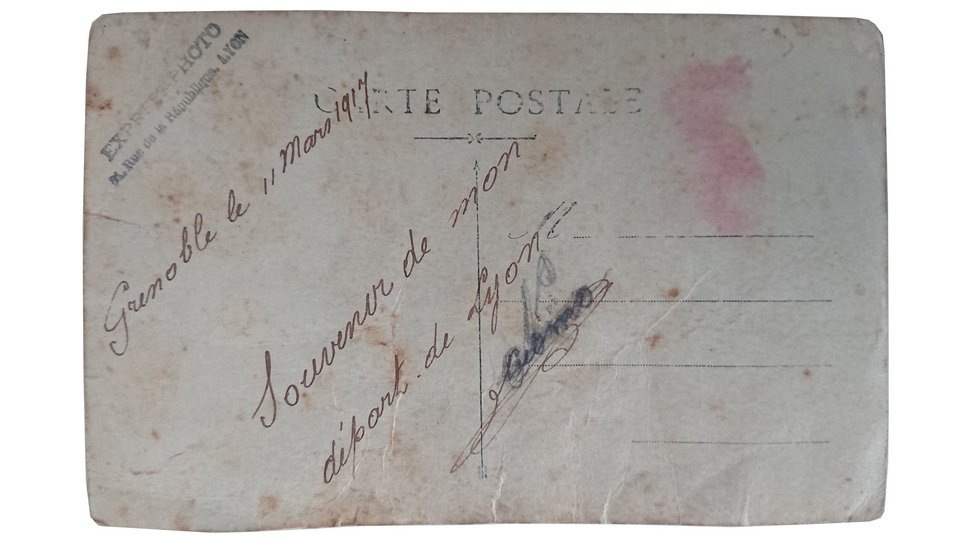 EXPRESS-PHOTO
91, Rue de la République, LYON
CARTE POSTALE
Grenoble le 11 Mars 1917
Souvenir de mon
départ de Lyon